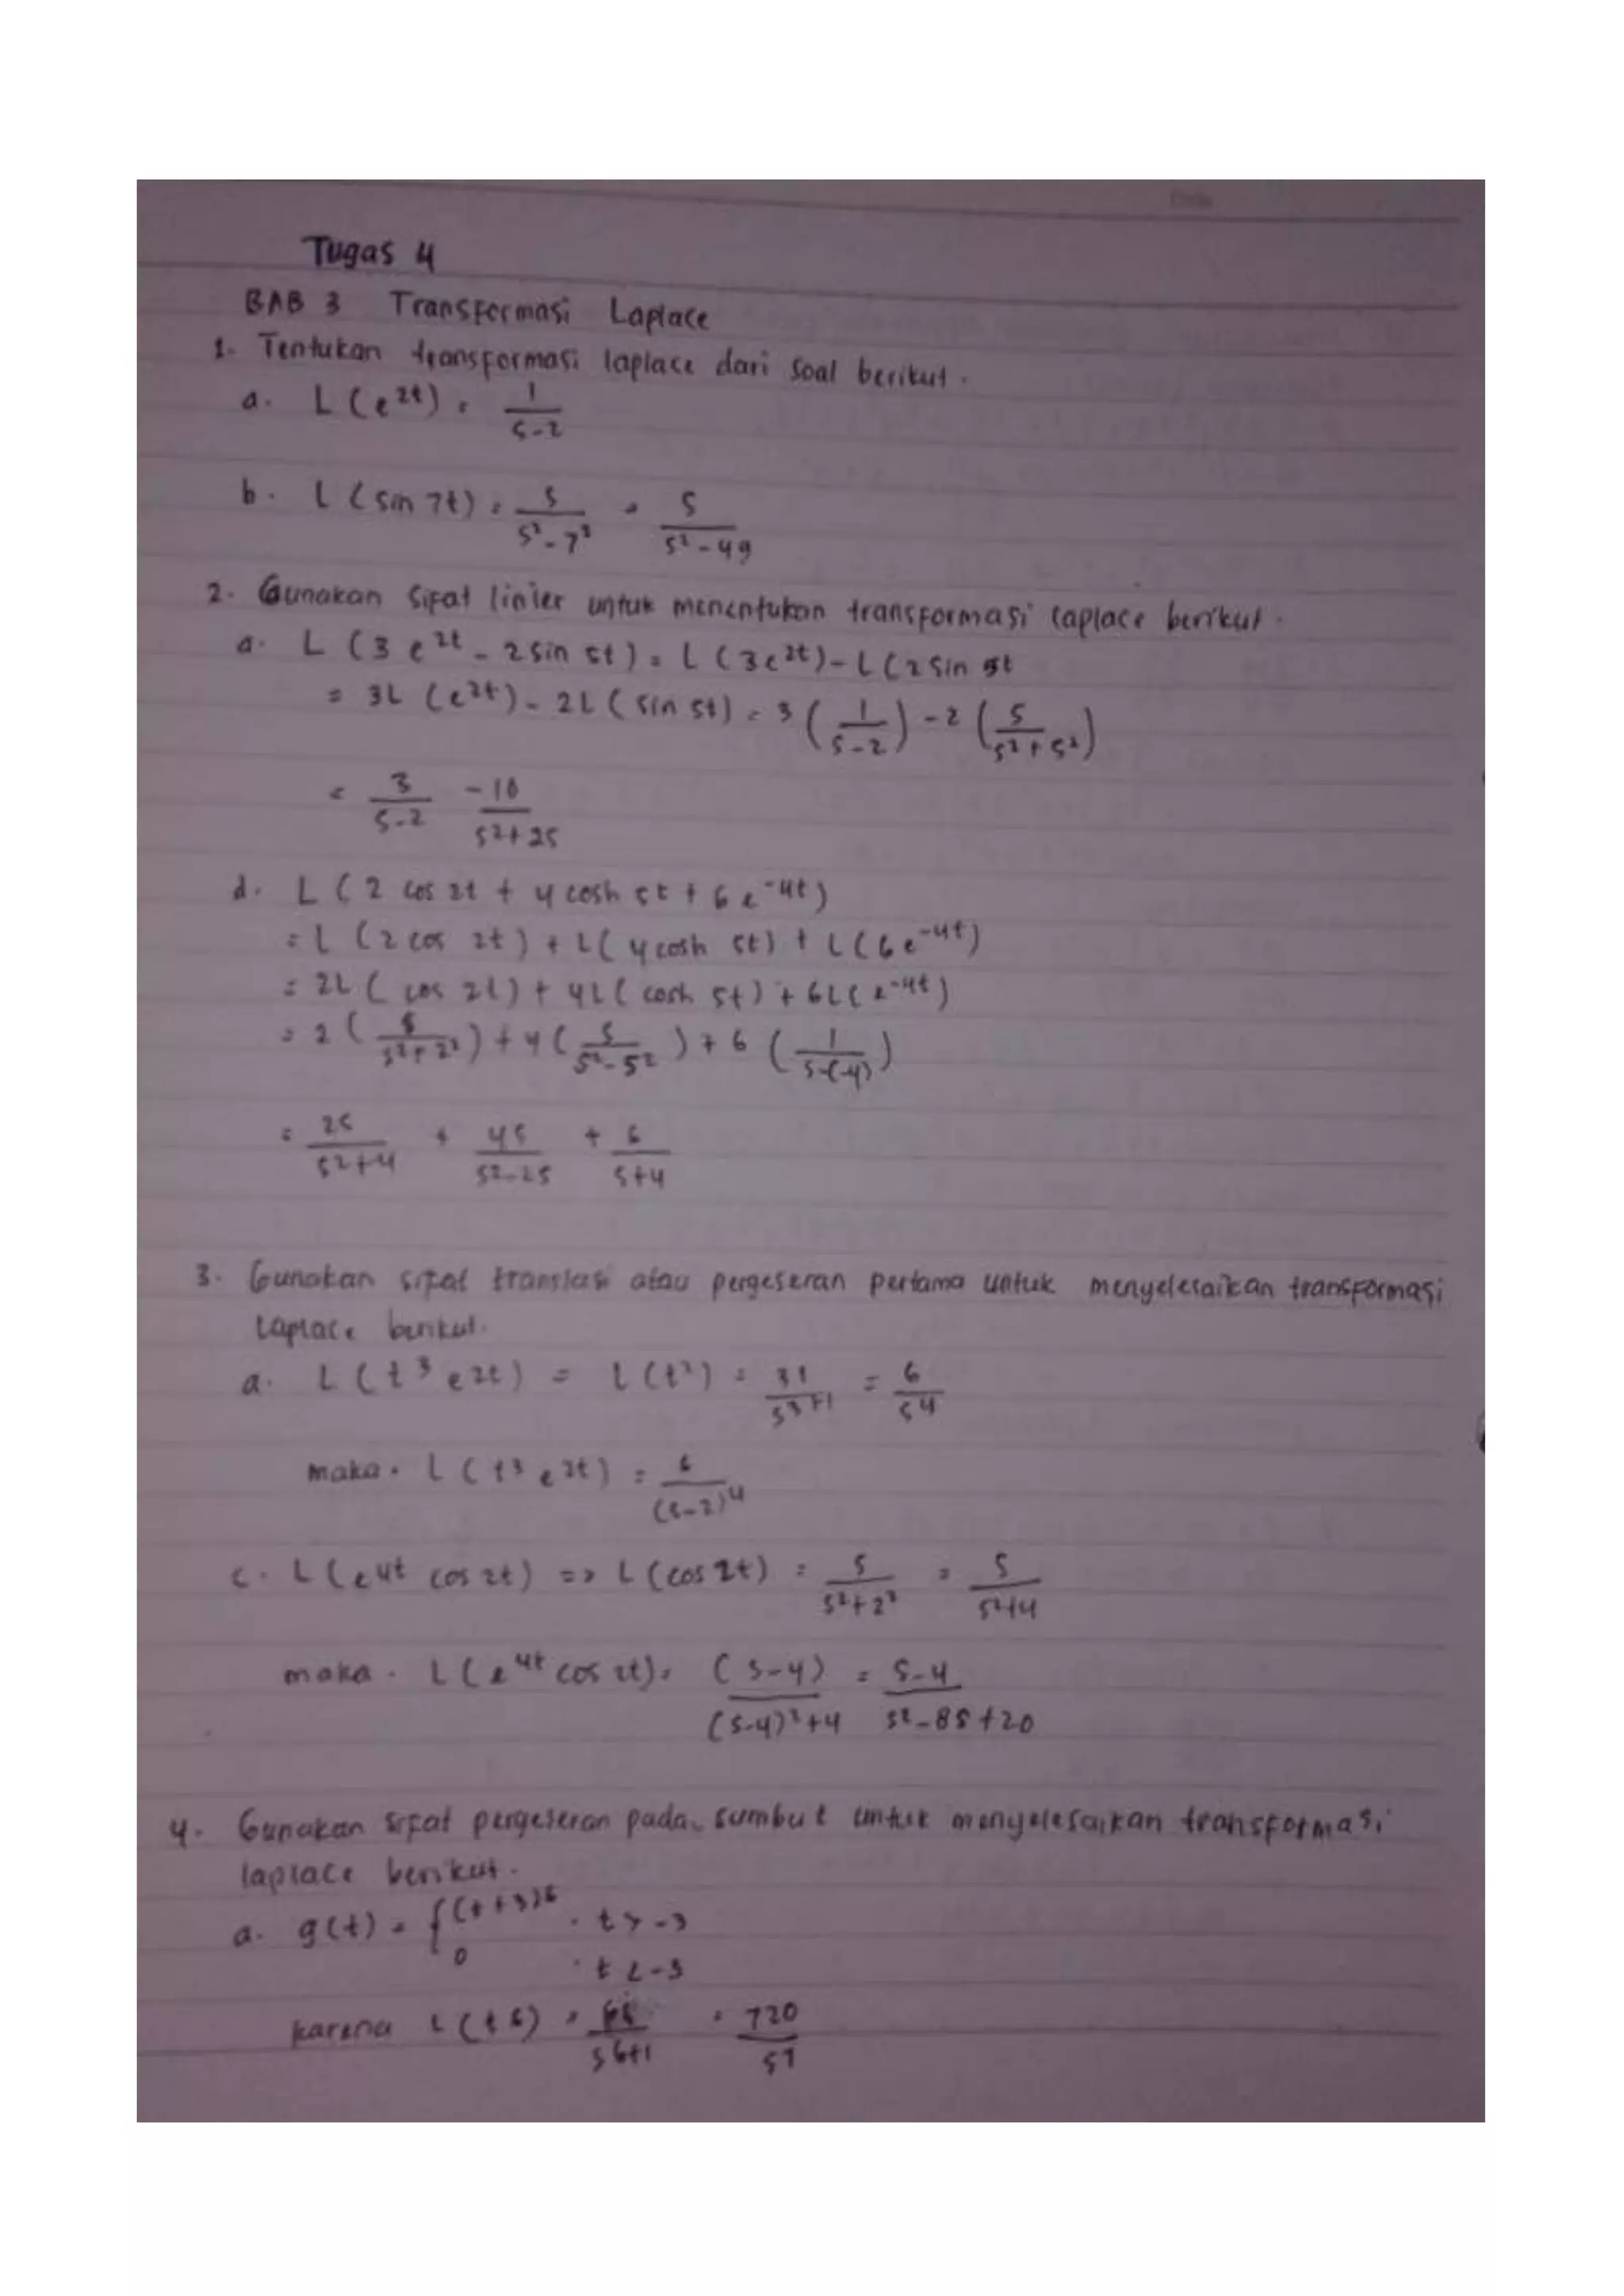 Tugas 4
BAB 3 Transformasi Laplace
1. Tentukan transformasi laplace dari soal berikut.
a. L(e^2t) = 1/(s-2)
b. L(sin 7t) = s/(s²-7²) = s/(s²-49)
2. Gunakan sifat linier untuk menentukan transformasi laplace berikut.
a. L(3e^2t - 2sin 5t) = L(3e^2t) - L(2 sin 5t
= 3L(e^2t) - 2L(sin 5t) = 3(1/(s-2)) - 2(5/(s²+5²))
= 3/(s-2) -10/(s²+25)
d. L(2 cos 2t + 4 cosh 5t + 6e^-4t)
= L(2 cos 2t) + L(4 cosh 5t) + L(6e^-4t)
= 2L(cos 2t) + 4L(cosh 5t) + 6L(e^-4t)
= 2(s/(s²+2²)) + 4(s/(s²-5²)) + 6(1/(s-(-4)))
= 2s/(s²+4) + 4s/(s²-25) + 6/(s+4)
3. Gunakan sifat translasi atau pergeseran pertama untuk menyelesaikan transformasi
Laplace berikut.
a. L(t³e^2t) = L(t³) = 3!/s^(3+1) = 6/s^4
maka. L(t³e^2t) = 6/(s-2)^4
c. L(e^4t cos 2t) => L(cos 2t) = s/(s²+2²) = s/(s²+4)
maka. L(e^4t cos 2t) = (s-4)/((s-4)²+4) = s-4/(s²-8s+20)
4. Gunakan sifat pergeseran pada sumbu t untuk menyelesaikan transformasi
laplace berikut.
a. g(t) = {(t+3)^6 . t > -3
0 . t < -3
karena L(t^6) = /s^(6+1) = 720/s^7